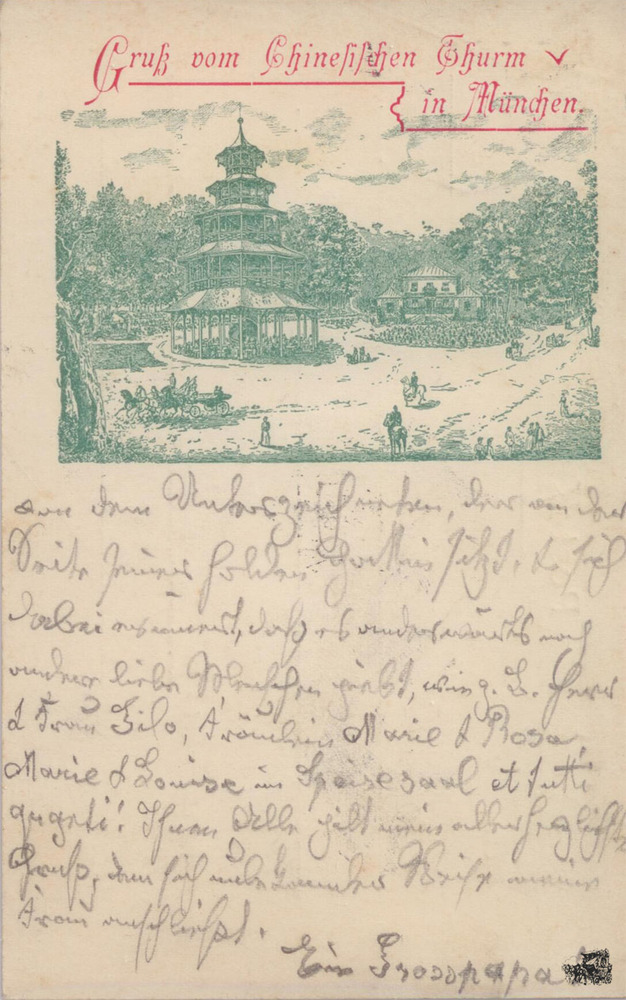 Gruß vom Chinesischen Thurm
in München.
von dem Unterzeichneten, der an der
Seite seiner holden Gattin sitzt, & sich
dabei erinnert, daß es anderswärts noch
andere liebe Menschen giebt, wie z. B. Herr
& Frau Zilo, Fräulein Marie & Rosa,
Marie & Louise im Speisesaal et tutti
quanti! Ihnen Alle gilt mein allerherzlichster
Gruß, dem sich unbekannter Weise meine
Frau anschließt.
Ein Grosspapa